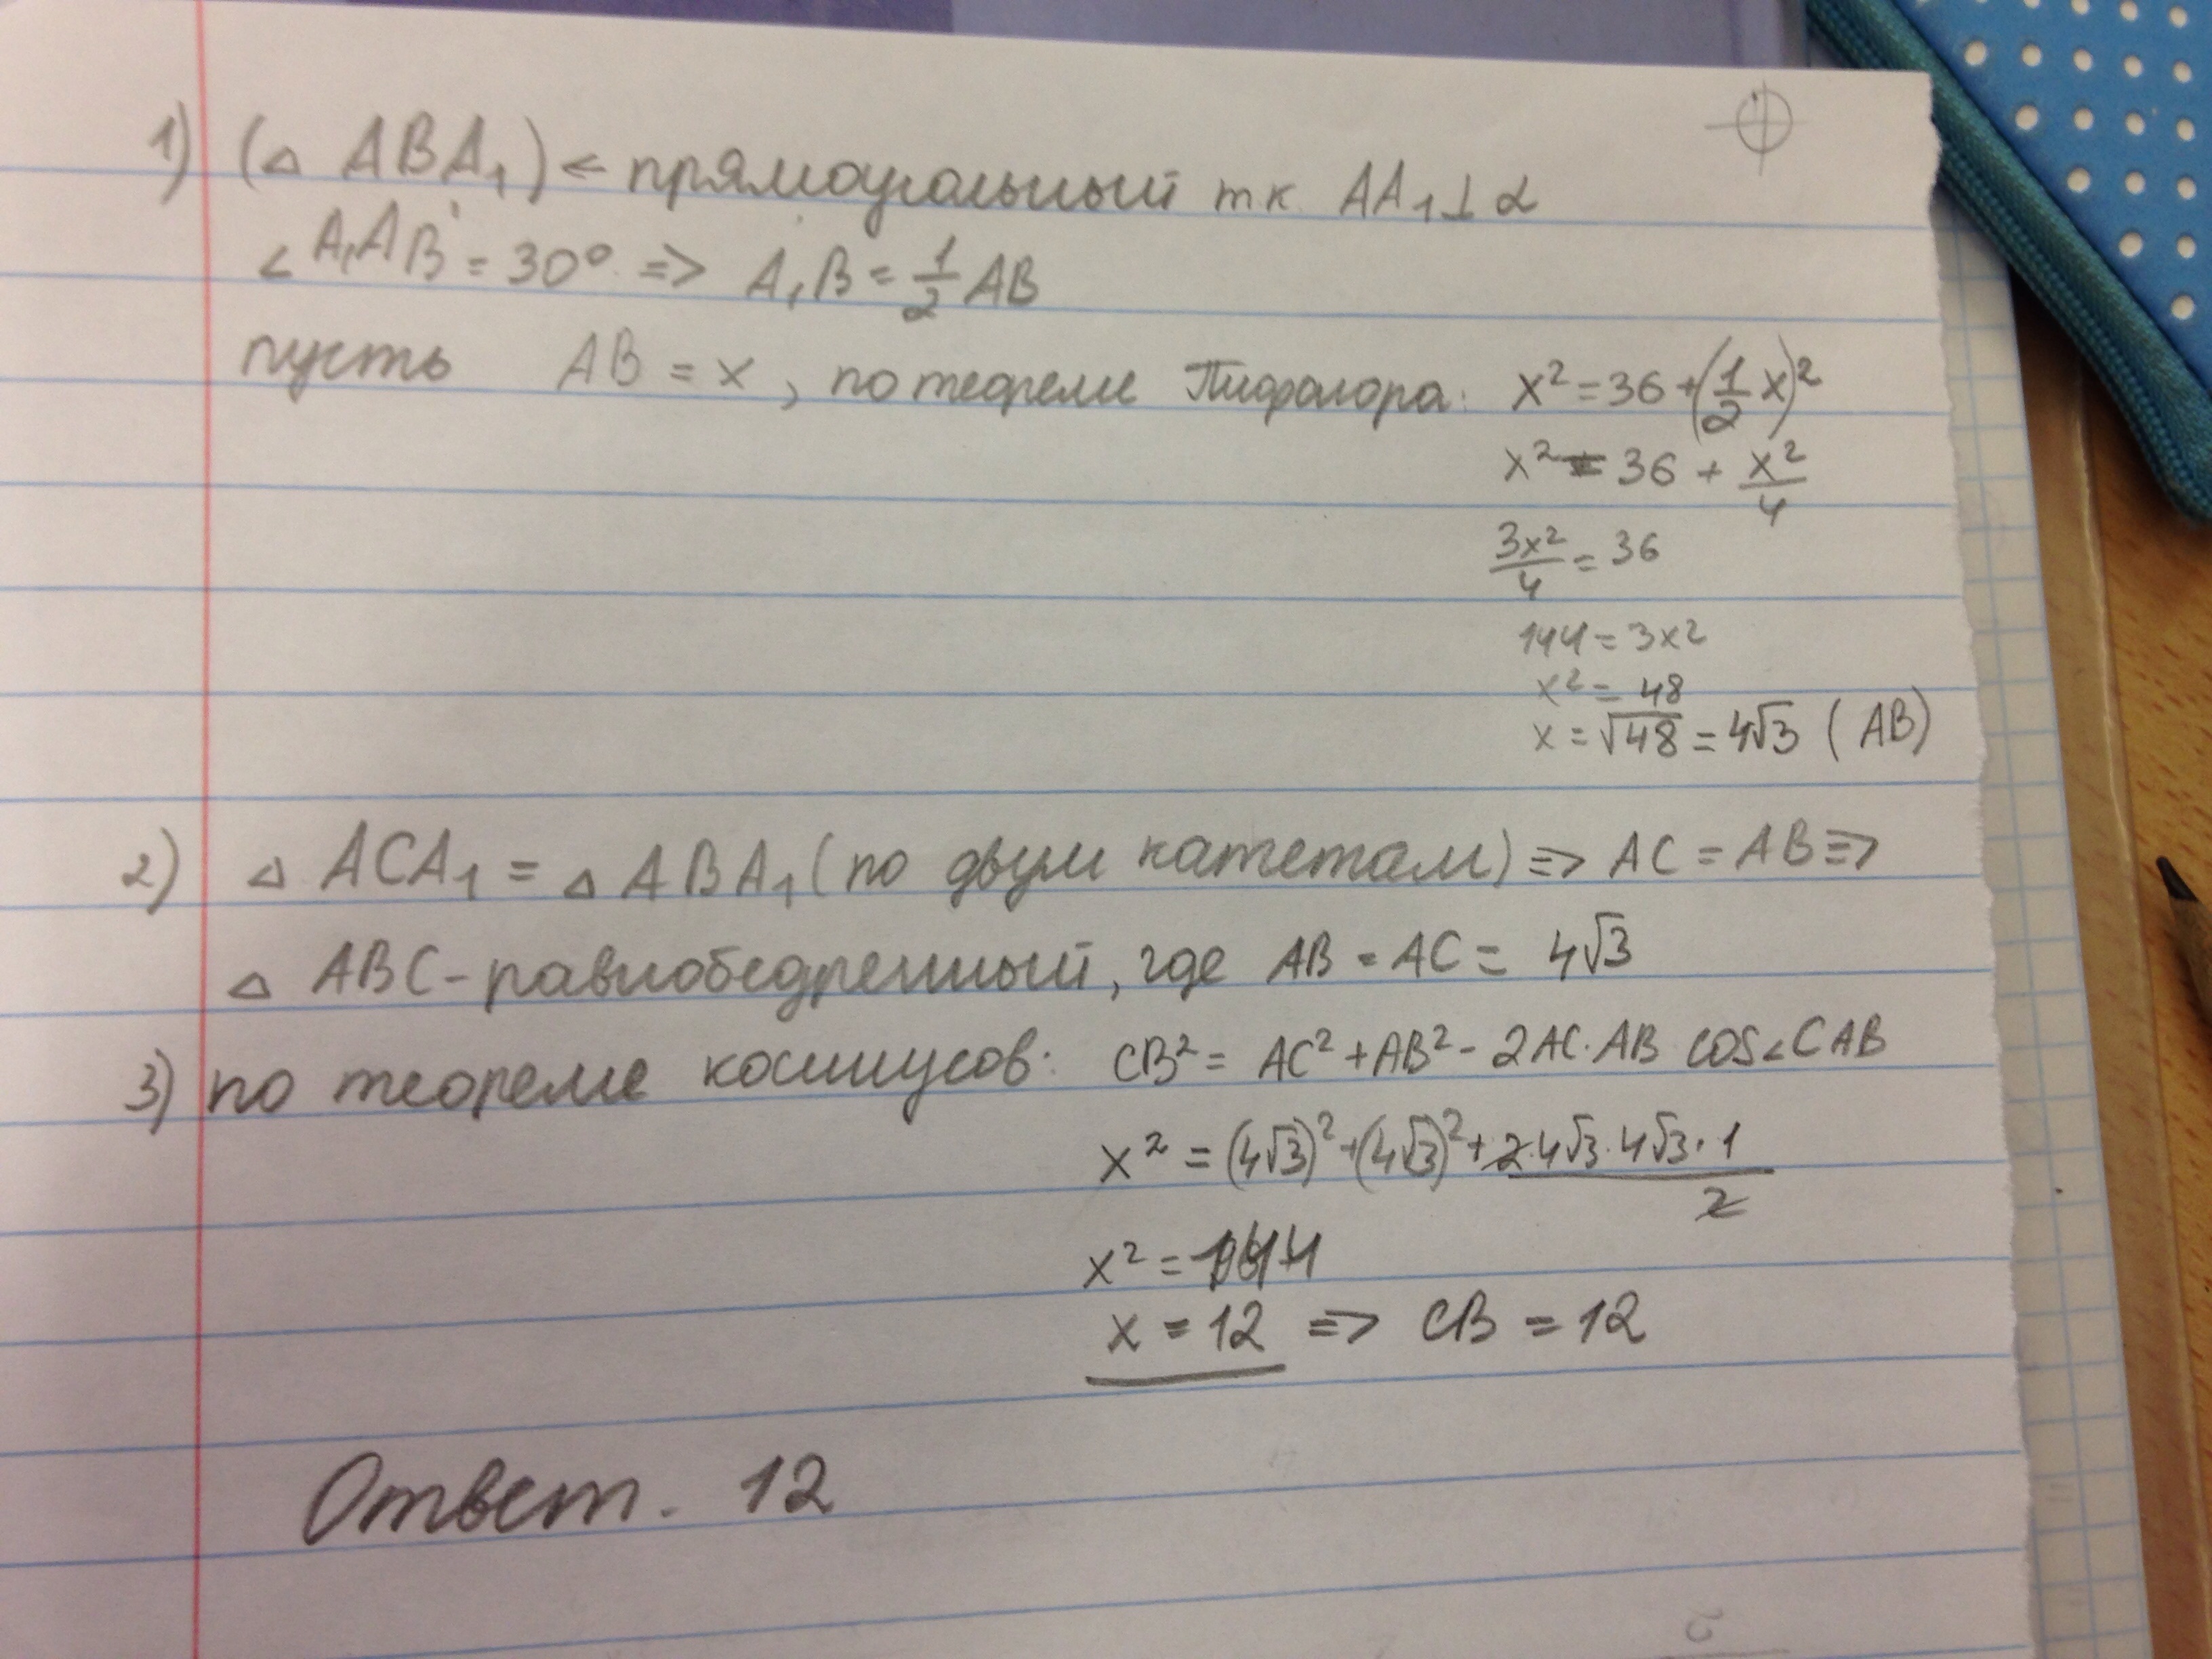 1) (△ ABA₁) ← прямоугольный тк AA₁⊥α
∠A₁AB = 30° => A₁B = 1/2 AB
пусть AB = x, по теореме Пифагора: x² = 36 + (1/2 x)²
x² = 36 + x²/4
3x²/4 = 36
144 = 3x²
x² = 48
x = √48 = 4√3 (AB)
2) △ ACA₁ = △ ABA₁ (по двум катетам) => AC = AB =>
△ ABC - равнобедренный, где AB = AC = 4√3
3) по теореме косинусов: CB² = AC² + AB² - 2AC·AB cos∠CAB
x² = (4√3)² + (4√3)² + 2·4√3·4√3·1/2
x² = 144
x = 12 => CB = 12
Ответ. 12